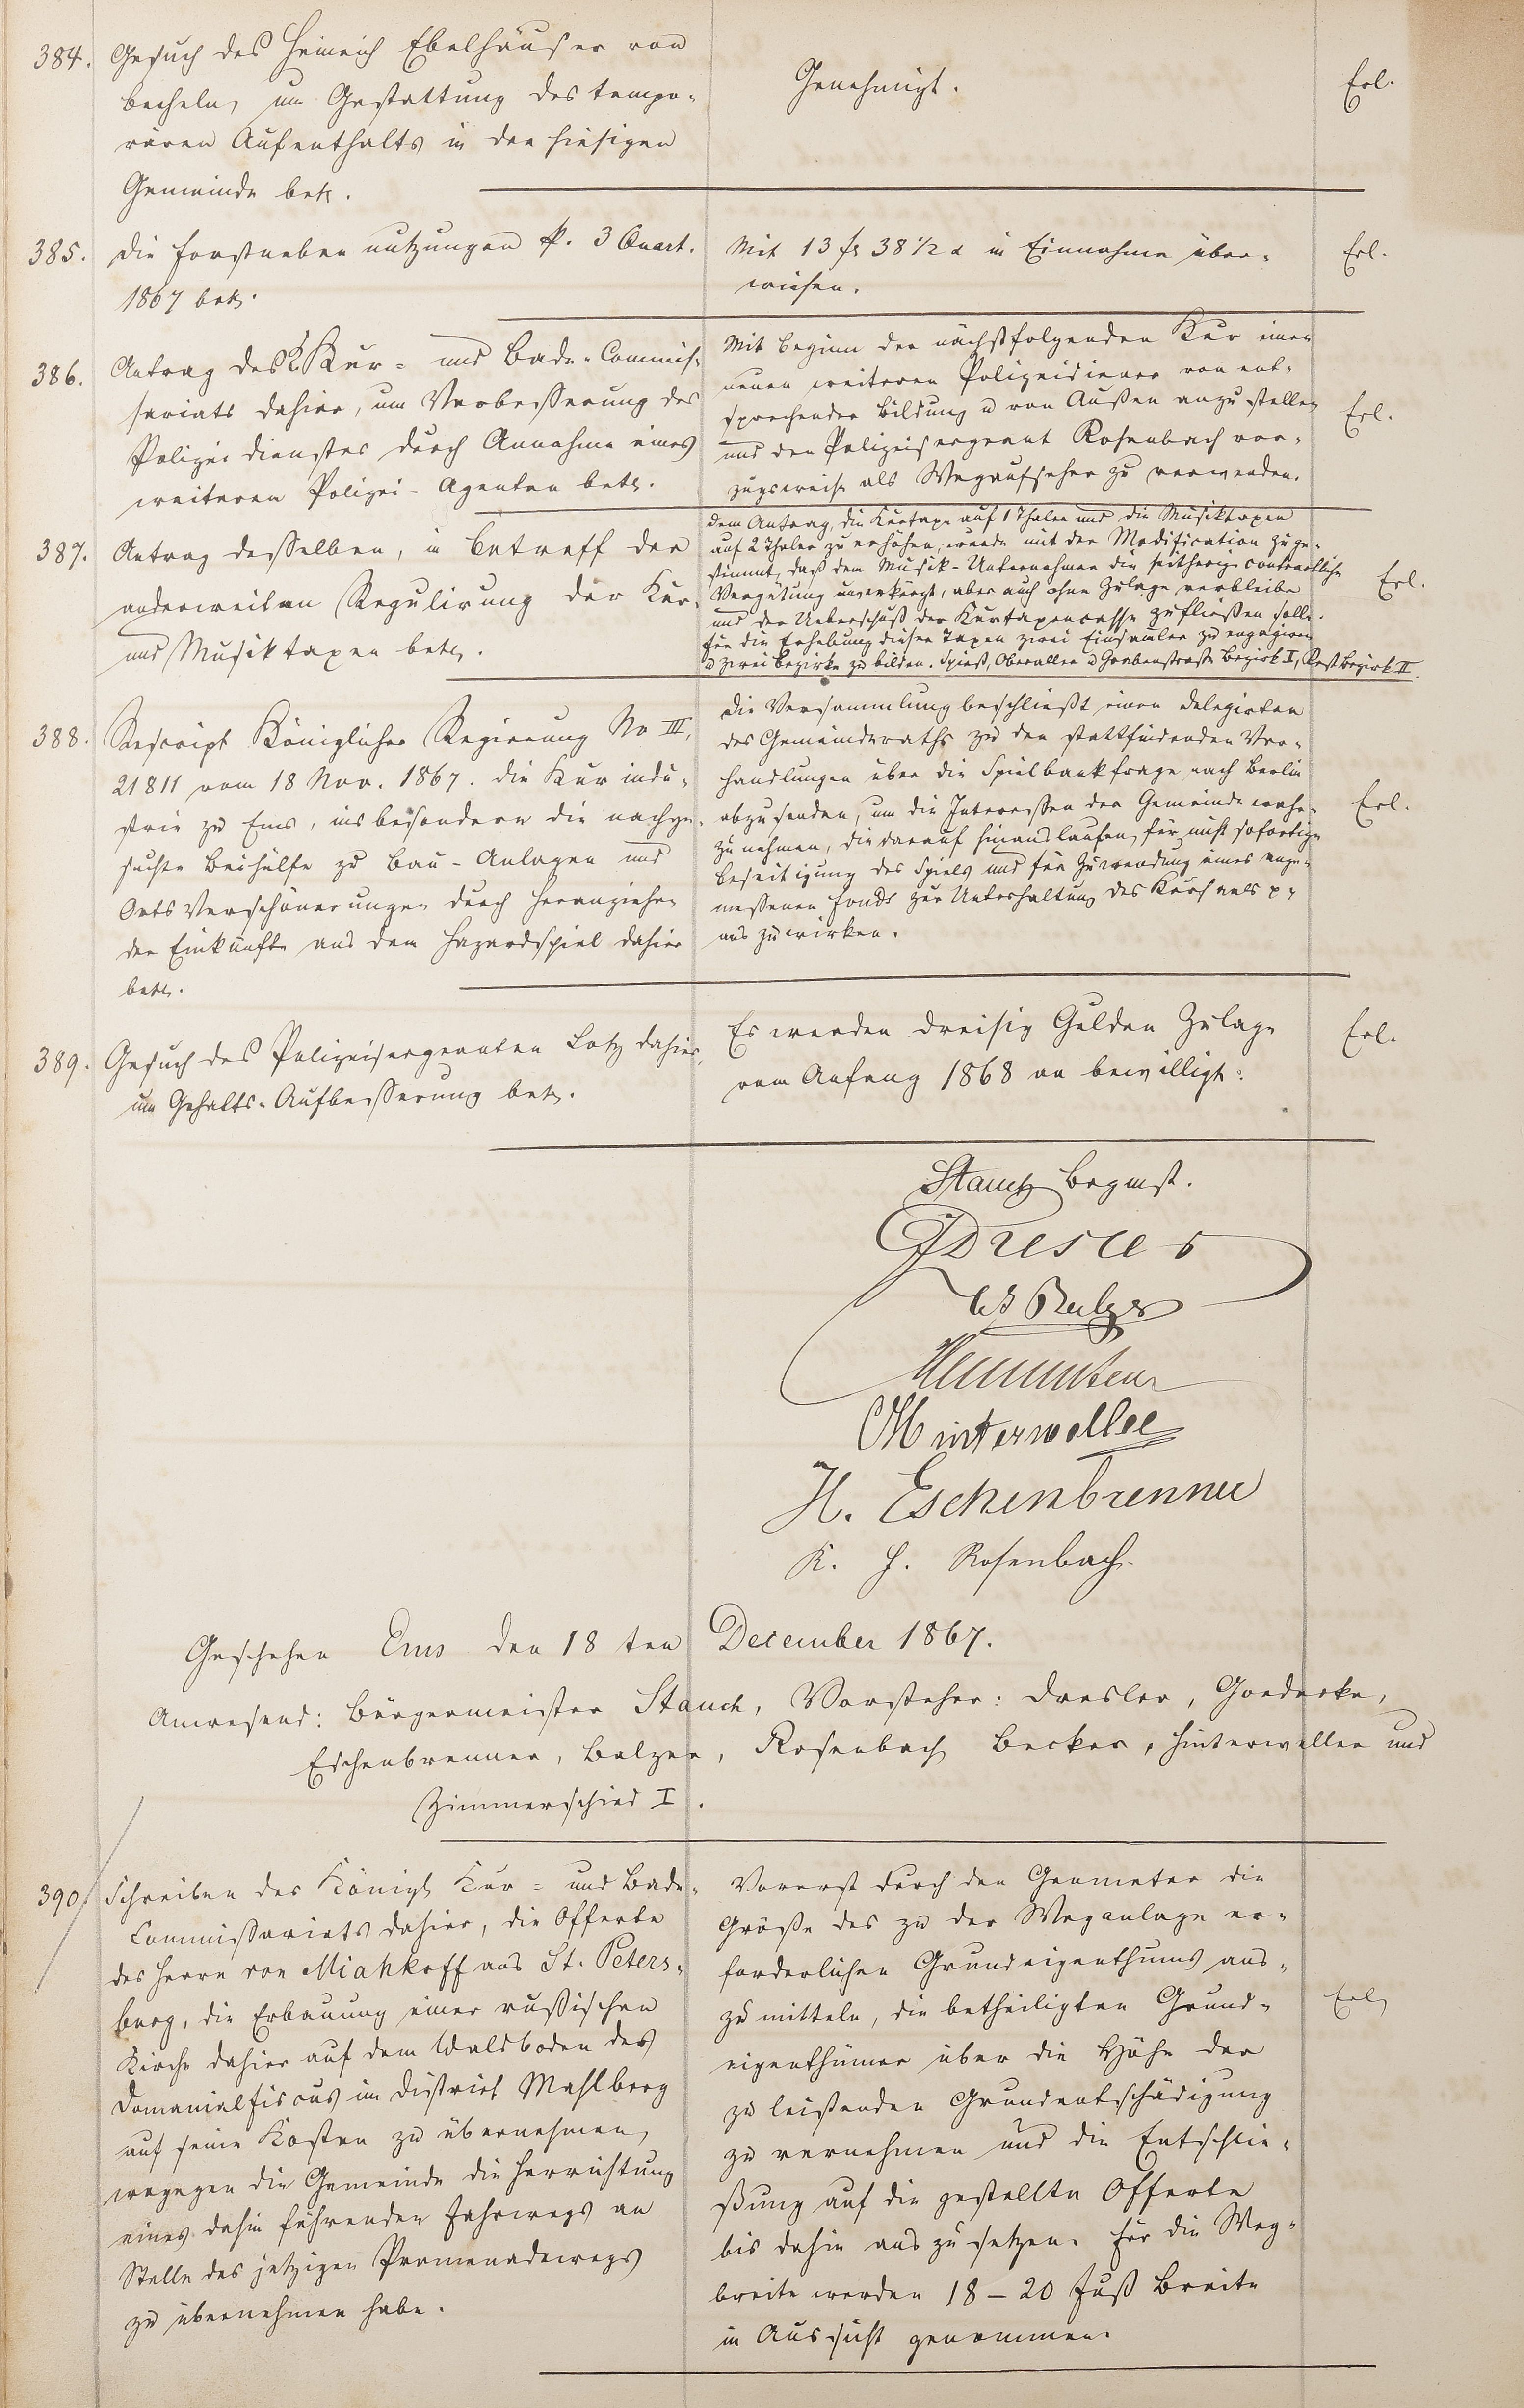 384. Gesuch des Heinrich Ebelhäuser von
Becheln, um Gestattung des tempo-
rären Aufenthalts in der hiesigen
Gemeinde betr.
Genehmigt.
Erl.
385. Die Forstnebennutzungen p. 3 Quart.
1867 betr.
Mit 13 fl 38 1/2 x in Einnahme über-
wiesen.
Erl.
386. Antrag des K. Kur- und Bade-Commis-
sariats dahier, um Verbesserung des
Polizeidienstes durch Annahme eines
weiteren Polizei-Agenten betr.
Mit Beginn der nächstfolgenden Kur einen
neuen weiteren Polizeidiener von ent-
sprechender Bildung u von Außen anzustellen
und den Polizeisergeant Rosenbach vor-
zugsweise als Wegaufseher zu verwenden.
Erl.
387. Antrag desselben, in Betreff der
anderweiten Regulirung der Kur-
und Musiktaxen betr.
Dem Antrag, die Kurtaxe auf 1 Thaler und die Musiktaxen
auf 2 Thaler zu erhöhen, wurde mit der Modification zuge-
stimmt, daß dem Musik-Unternehmer die seitherige contractliche
Vergütung unverkürzt, aber auch ohne Zulage verbleibe
und der Ueberschuß der Kurtaxencasse zufließen solle.
Für die Erhebung dieser Taxen zwei Einsamler zu engagiren
u zwei Bezirke zu bilden. Spieß, Oberallee u Grabenstraße Bezirk I, Rest Bezirk II.
Erl.
388. Rescript Königlicher Regierung No III,
21811 vom 18 Nov. 1867. die Kurindu-
strie zu Ems, insbesondere die nachge-
suchte Beihülfe zu Bau-Anlagen und
Ortsverschönerungen durch Heranziehen
der Einkünfte aus dem Hazardspiel dahier
betr.
Die Versammlung beschließt einen Delegirten
des Gemeinderaths zu den stattfindenden Ver-
handlungen über die Spielbankfrage nach Berlin
abzusenden, um die Interessen der Gemeinde wahr-
zunehmen, die darauf hinauslaufen, für nicht sofortige
Beseitigung des Spiels und für Zuwendung eines ange-
messenen Fonds zur Unterhaltung des Kursaals p.
auszuwirken.
Erl.
389. Gesuch des Polizeisergeanten Lotz dahier,
um Gehalts-Aufbesserung betr.
Es werden dreisig Gulden Zulage
vom Anfang 1868 an bewilligt.
Erl.
Stauch Brgmst.
Dresler
W Balzer
Hinterweller
H. Eschenbrenner
K. H. Rosenbach
Geschehen Ems den 18 ten December 1867.
Anwesend: Bürgermeister Stauch, Vorsteher: Dresler, Goedecke,
Eschenbrenner, Balzer, Rosenbach Becker, Hinterweller und
Zimmerschied I.
390. Schreiben des Königl Kur- und Bade-
Commissariats dahier, die Offerte
des Herrn von Miahkoff aus St. Peters-
burg, die Erbauung einer russischen
Kirche dahier auf dem Waldboden des
Domanialfiscus im District Mahlberg
auf seine Kosten zu übernehmen,
wogegen die Gemeinde die Herrichtung
eines dahin führenden Fahrwegs an
Stelle des jetzigen Promenadewegs
zu übernehmen habe.
Vorerst durch den Geometer die
Größe des zu der Weganlage er-
forderlichen Grundeigenthums aus-
zumitteln, die betheiligten Grund-
eigenthümer über die Höhe der
zu leistenden Grundentschädigung
zu vernehmen und die Entschlie-
ßung auf die gestellte Offerte
bis dahin auszusetzen. Für die Weg-
breite werden 18 – 20 Fuß Breite
in Aussicht genommen.
Erl